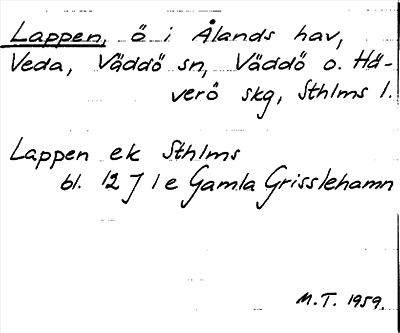 Lappen, ö i Ålands hav,
Veda, Väddö sn, Väddö o. Hä-
verö skg, Sthlms l.
Lappen ek Sthlms
bl. 12 J 1 e Gamla Grisslehamn
M.T. 1959.